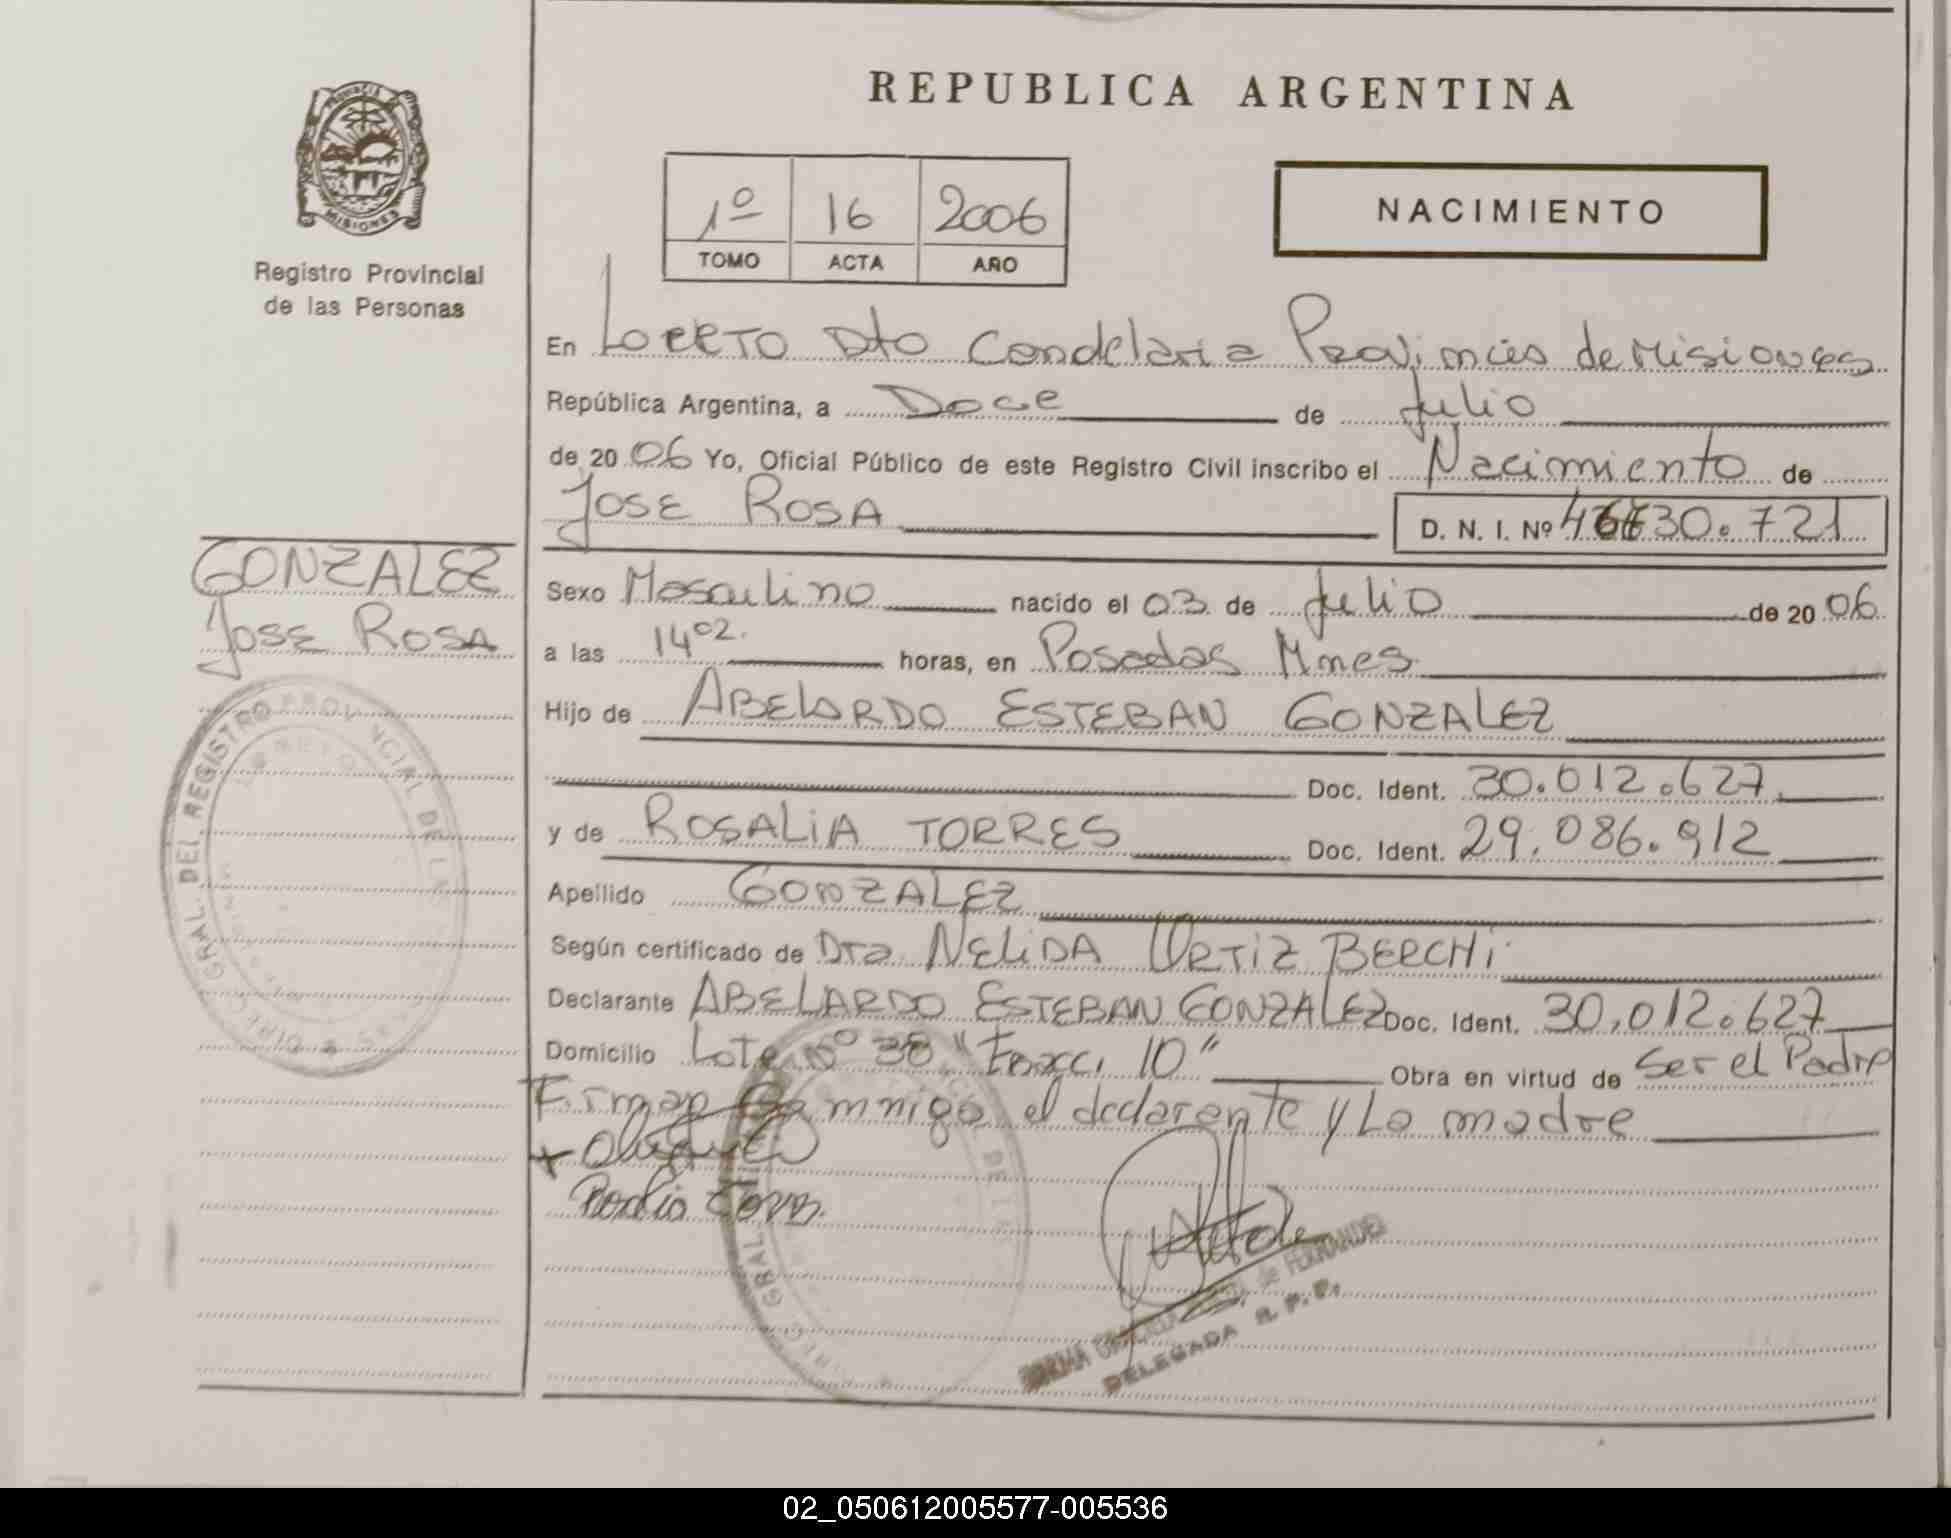 PROVINCIA DE
MISIONES
Registro Provincial
de las Personas
REPUBLICA ARGENTINA
1º 16 2006
TOMO ACTA AÑO
NACIMIENTO
En Loreto Dto Candelaria Provincia de Misiones
República Argentina, a Doce de Julio
de 2006 Yo, Oficial Público de este Registro Civil inscribo el Nacimiento de
JOSE ROSA D. N. I. Nº 30.721
GONZALEZ
JOSE ROSA
Sexo Masculino nacido el 03 de Julio de 2006
a las 14 02. horas, en Posadas Mnes.
Hijo de ABELARDO ESTEBAN GONZALEZ
Doc. Ident. 30.012.627
y de ROSALIA TORRES Doc. Ident. 29.086.912
Apellido GONZALEZ
Según certificado de Dra NELIDA ORTIZ BERCHI
Declarante ABELARDO ESTEBAN GONZALEZ Doc. Ident. 30.012.627
Domicilio Lote Nº 38 "Fracc. 10" Obra en virtud de Ser el Padre
Firman conmigo el declarante y La madre
NORMA de FERNANDEZ
DELEGADA R. P. P.
DIREC. GRAL. DEL REGISTRO PROVINCIAL DE LAS
LORETO
02_050612005577-005536